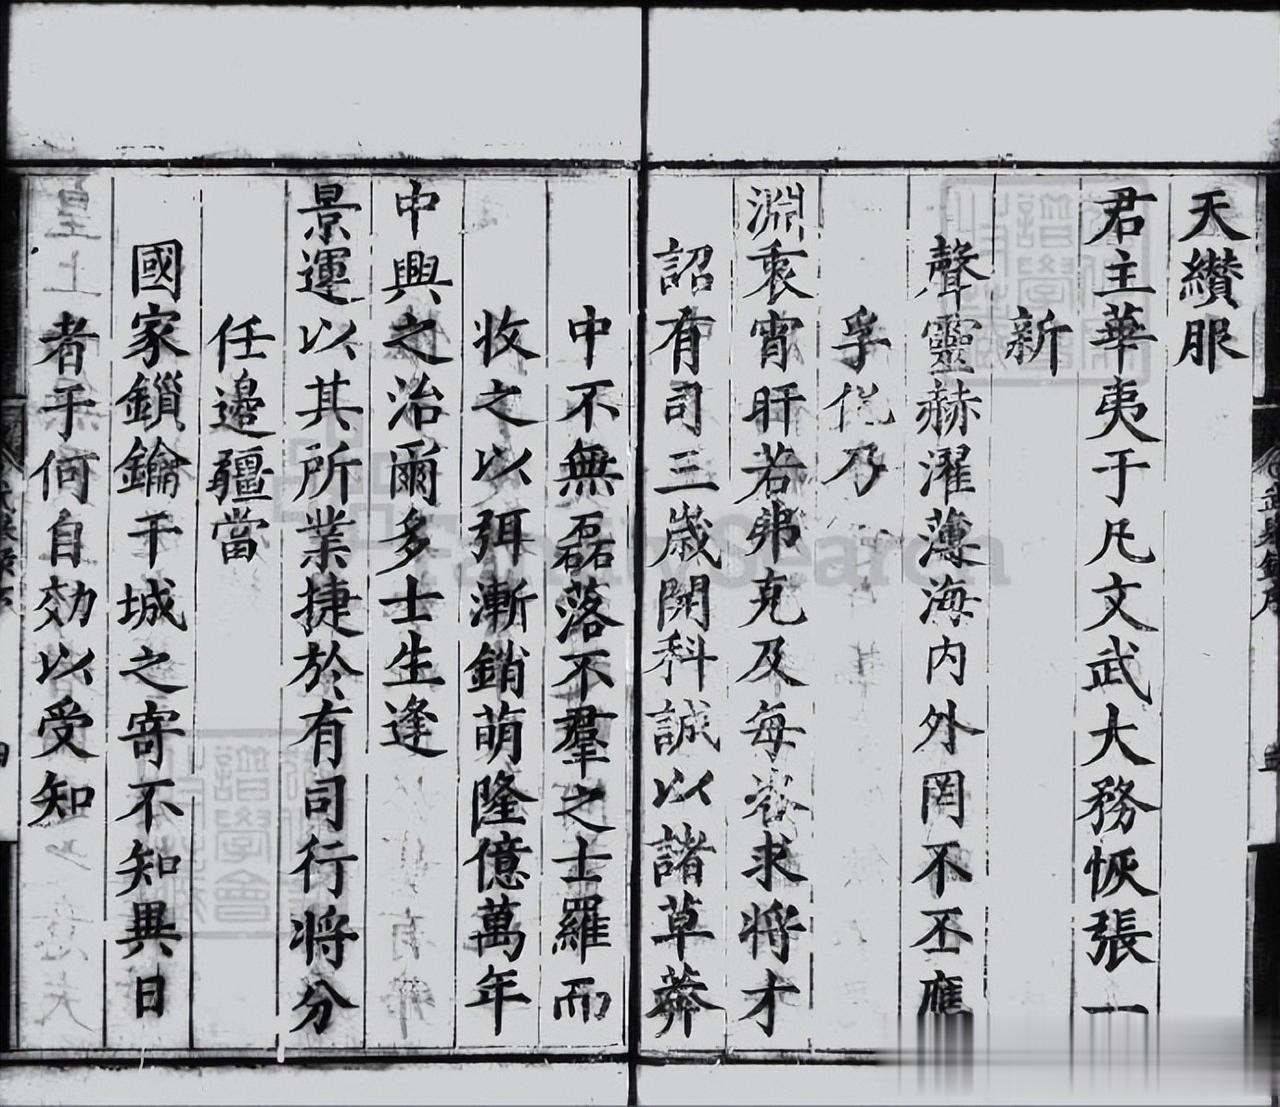 天纘服
君主華夷于凡文武大務恢張一
新
聲靈赫濯薄海内外罔不丕應
孚化乃
淵衷宵旰若弗克及每拳求將才
詔有司三歲開科誠以諸草莽
中不無磊落不羣之士羅而
收之以弭漸銷萌隆億萬年
中興之治爾多士生逢
景運以其所業捷於有司行將分
任邊疆當
國家鎖鑰干城之寄不知異日
者于何自効以受知
FamilySearch